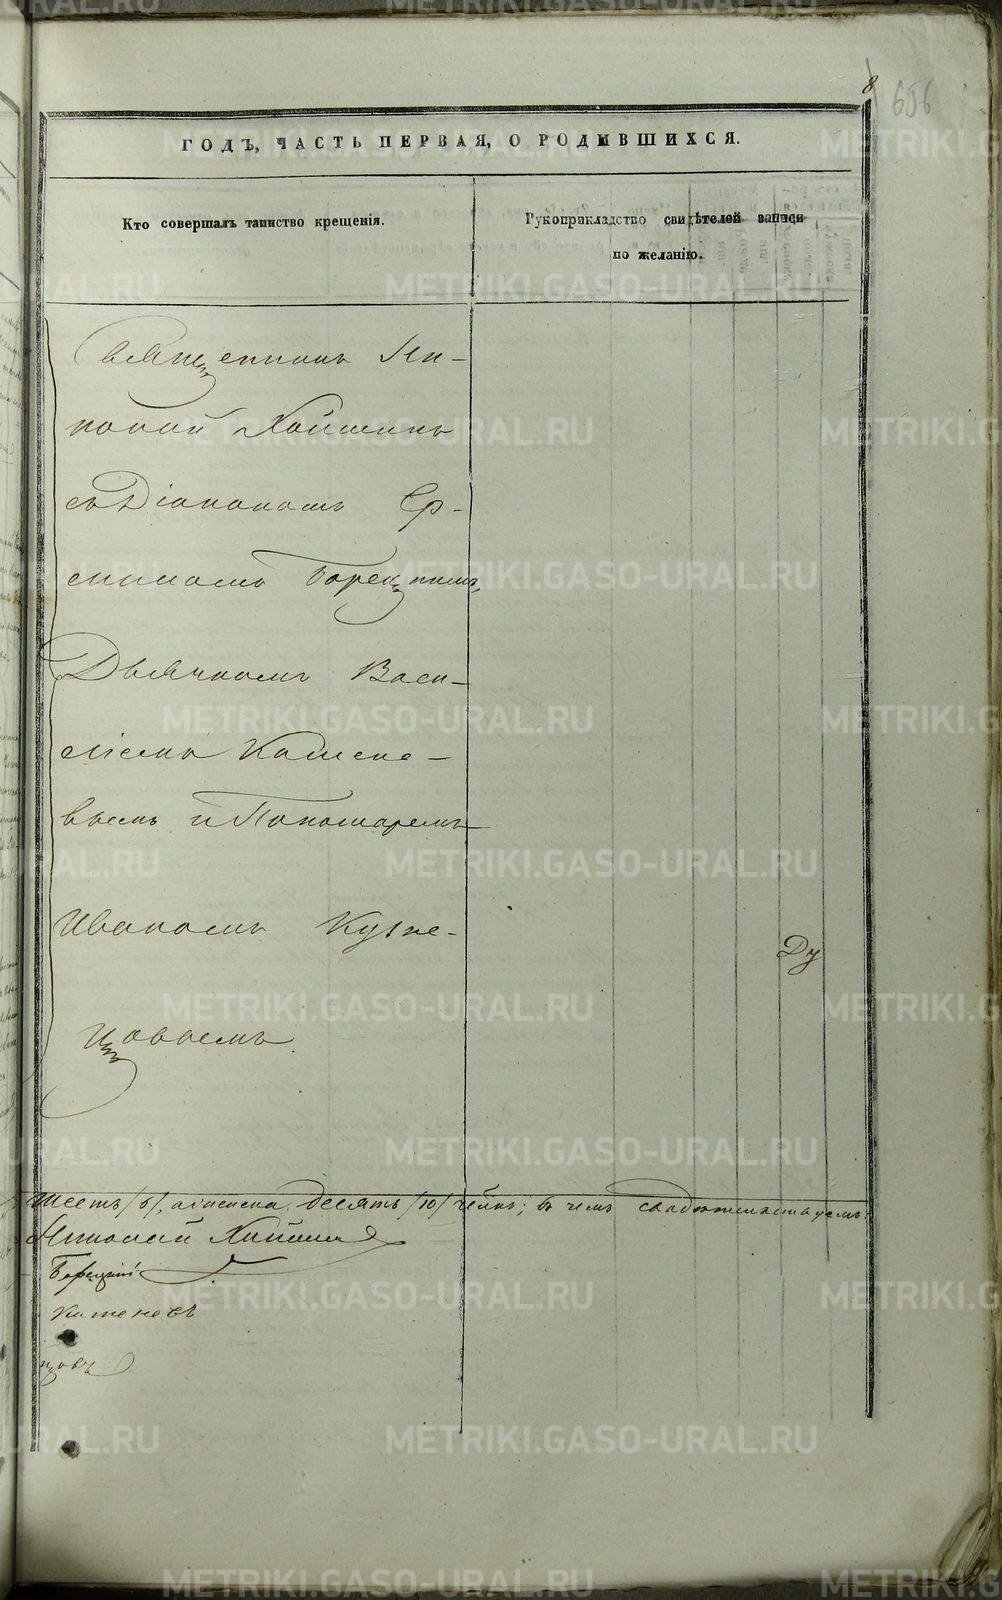 8
656
ГОДЪ, ЧАСТЬ ПЕРВАЯ, О РОДИВШИХСЯ.
Кто совершалъ таинство крещенія.
Рукоприкладство свидѣтелей записи
по желанію.
Священникъ Ни-
колай Хлынинъ
съ Діакономъ Ер-
Борецкимъ,
Дьячкомъ Васи-
ліемъ Каmене-
вымъ и Пономаремъ
Иваномъ Кузне-
цовымъ.
Ду
шесть /6/, женска десять /10/ чел.; въ чемъ свидѣтельствуемъ:
Николай
Борецкій
цовъ
METRIKI.GASO-URAL.RU